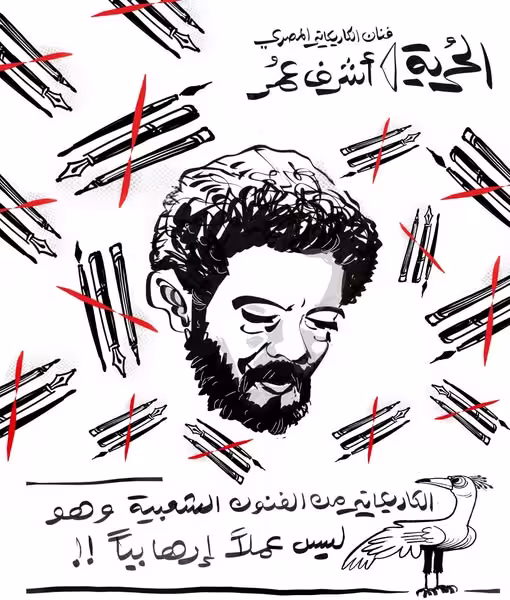 فنان الكاريكاتير المصري
الحرية
أشرف عمر
الكاريكاتير من الفنون الشعبية وهو
ليس عملاً إرهابياً !!